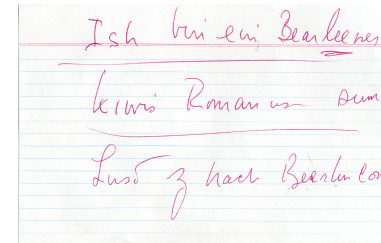 Ish bin ein Bearleener
kiwis Romanus sum
z nach Bearlin com